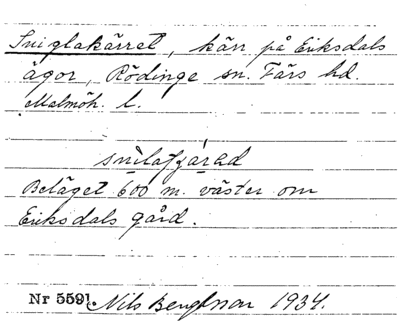 Sniglakärret, kärr på Eriksdals
ägor, Rödinge sn. Färs hd.
Malmöh. l.
Beläget 600 m. väster om
Eriksdals gård.
Nr 5591. Nils Bengtsson 1934.